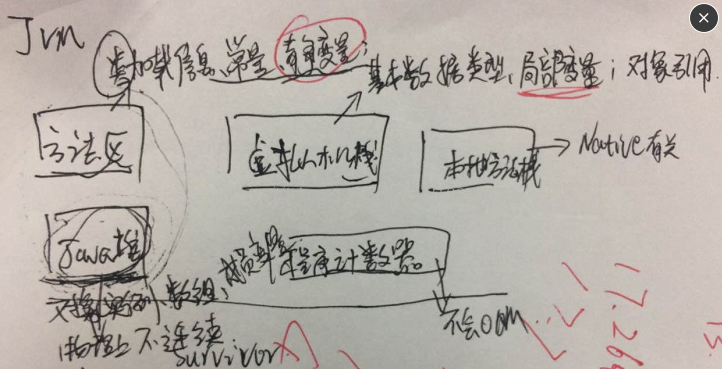 Jvm
类加载信息、常量、静态变量;
基本数据类型、局部变量;对象引用.
方法区
虚拟机栈
本地方法栈
Native有关
Java堆
程序计数器。
对象实例 数组,
不会OOM
物理上不连续
survivor
17.26